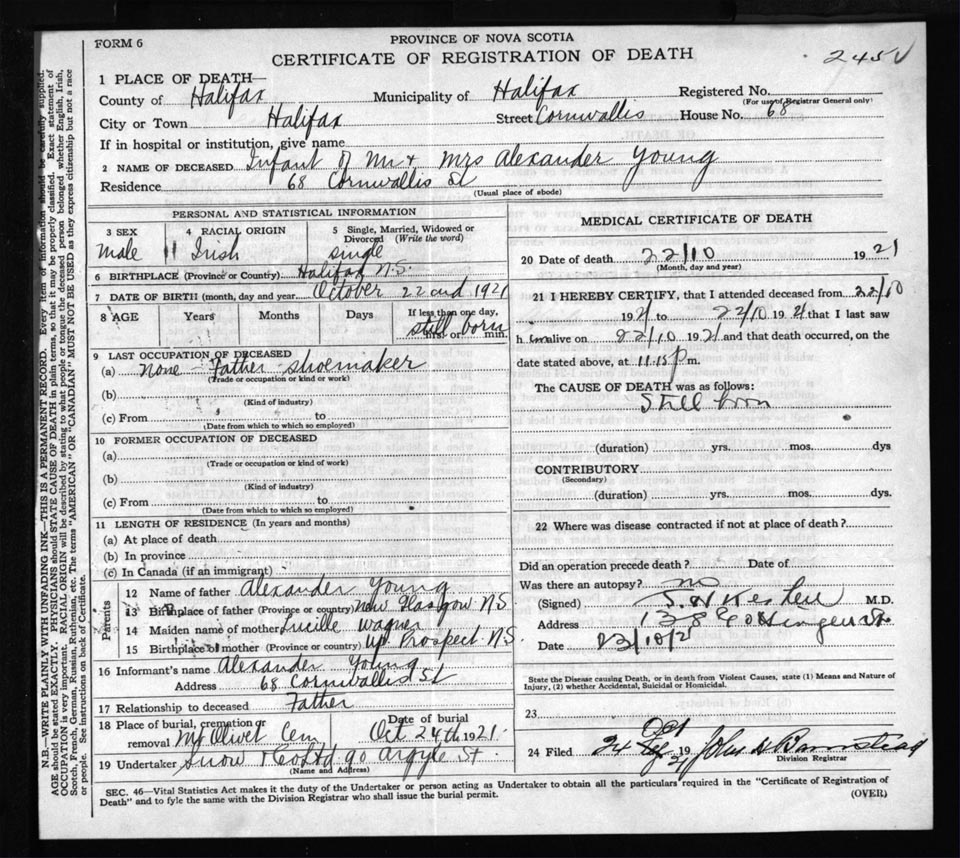 FORM 6
PROVINCE OF NOVA SCOTIA
CERTIFICATE OF REGISTRATION OF DEATH
245
1 PLACE OF DEATH—
County of Halifax Municipality of Halifax Registered No.
(For use of Registrar General only)
City or Town Halifax Street Cornwallis House No. 68
If in hospital or institution, give name
2 NAME OF DECEASED Infant of Mr + Mrs Alexander Young
Residence 68 Cornwallis St
(Usual place of abode)
PERSONAL AND STATISTICAL INFORMATION
3 SEX 4 RACIAL ORIGIN 5 Single, Married, Widowed or Divorced (Write the word)
male Irish single
6 BIRTHPLACE (Province or Country) Halifax N.S.
7 DATE OF BIRTH (month, day and year) October 22nd 1921
8 AGE Years Months Days If less than one day,
still born
hrs. or min.
9 LAST OCCUPATION OF DECEASED
(a) None - Father shoemaker
(Trade or occupation or kind or work)
(b)
(Kind of industry)
(c) From to
(Date from which to which so employed)
10 FORMER OCCUPATION OF DECEASED
(a)
(Trade or occupation or kind of work)
(b)
(Kind of industry)
(c) From to
(Date from which to which so employed)
11 LENGTH OF RESIDENCE (In years and months)
(a) At place of death
(b) In province
(c) In Canada (if an immigrant)
Parents
12 Name of father Alexander Young
13 Birthplace of father (Province or country) New Glasgow N.S.
14 Maiden name of mother Lucille Wagner
15 Birthplace of mother (Province or country) Up. Prospect N.S.
16 Informant's name Alexander Young
Address 68 Cornwallis St
17 Relationship to deceased Father
18 Place of burial, cremation or removal Mt Olivet Cem Date of burial Oct 24th 1921
19 Undertaker Snow & Co Ltd 90 Argyle St
(Name and Address)
MEDICAL CERTIFICATE OF DEATH
20 Date of death 22/10 1921
(Month, day and year)
21 I HEREBY CERTIFY, that I attended deceased from 22/10
1921 to 22/10 1921 that I last saw
h im alive on 22/10 1921 and that death occurred, on
date stated above, at 11.15 p m.
The CAUSE OF DEATH was as follows:
Still born
(duration) yrs. mos. dys
CONTRIBUTORY
(Secondary)
(duration) yrs. mos. dys.
22 Where was disease contracted if not at place of death?
Did an operation precede death? Date of
Was there an autopsy? no
(Signed) M.D.
Address 138 Gottingen St
Date 23/10/21
State the Disease causing Death, or in death from Violent Causes, state (1) Means and Nature of
Injury, (2) whether Accidental, Suicidal or Homicidal.
23
24 Filed 24 Oct 1921 John H Barnstead
Division Registrar
SEC. 46—Vital Statistics Act makes it the duty of the Undertaker or person acting as Undertaker to obtain all the particulars required in the "Certificate of Registration of
Death" and to fyle the same with the Division Registrar who shall issue the burial permit.
(OVER)
N.B.—WRITE PLAINLY WITH UNFADING INK—THIS IS A PERMANENT RECORD. Every item of information should be carefully supplied.
AGE should be stated EXACTLY. PHYSICIANS should STATE CAUSE OF DEATH in plain terms, so that it may be properly classified. Exact statement of
OCCUPATION is very important. RACIAL ORIGIN will be described by stating to what people or tongue the deceased person belonged whether English, Irish,
Scotch, French, German, Russian, Ruthenian, etc. The terms "AMERICAN" OR "CANADIAN" MUST NOT BE USED as they express citizenship but not a race
or people. See instructions on back of Certificate.